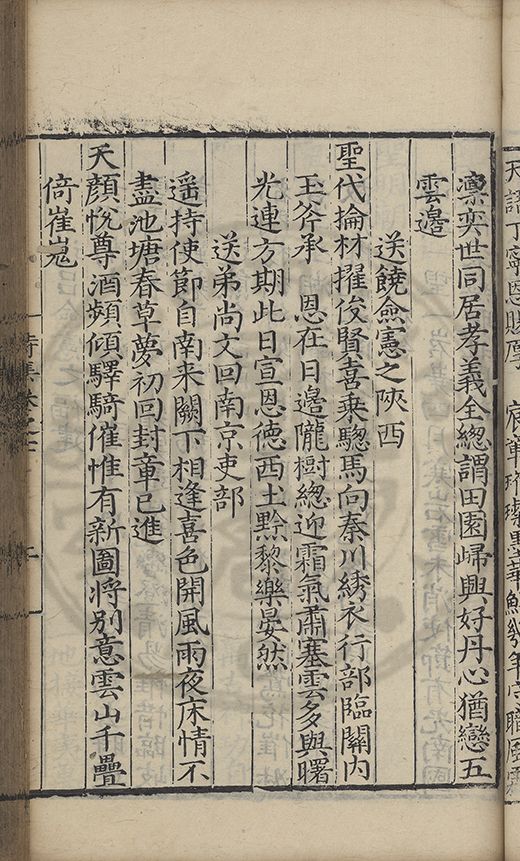 凛奕世同居孝義全總謂田園歸興好丹心猶戀五
雲邊
送饒僉憲之陝西
聖代掄材擢俊賢喜乗驄馬向秦川綉衣行部臨關内
玉斧承　恩在日邊隴樹總迎霜氣肅塞雲多與曙
光連方期此日宣恩德西土黔黎樂晏然
送弟尚文回南京吏部
遥持使節自南来闕下相逢喜色開風雨夜床情不
盡池塘春草夢初回封章已進
天顔悅尊酒頻傾驛騎催惟有新圖將别意雲山千疊
倚崔嵬